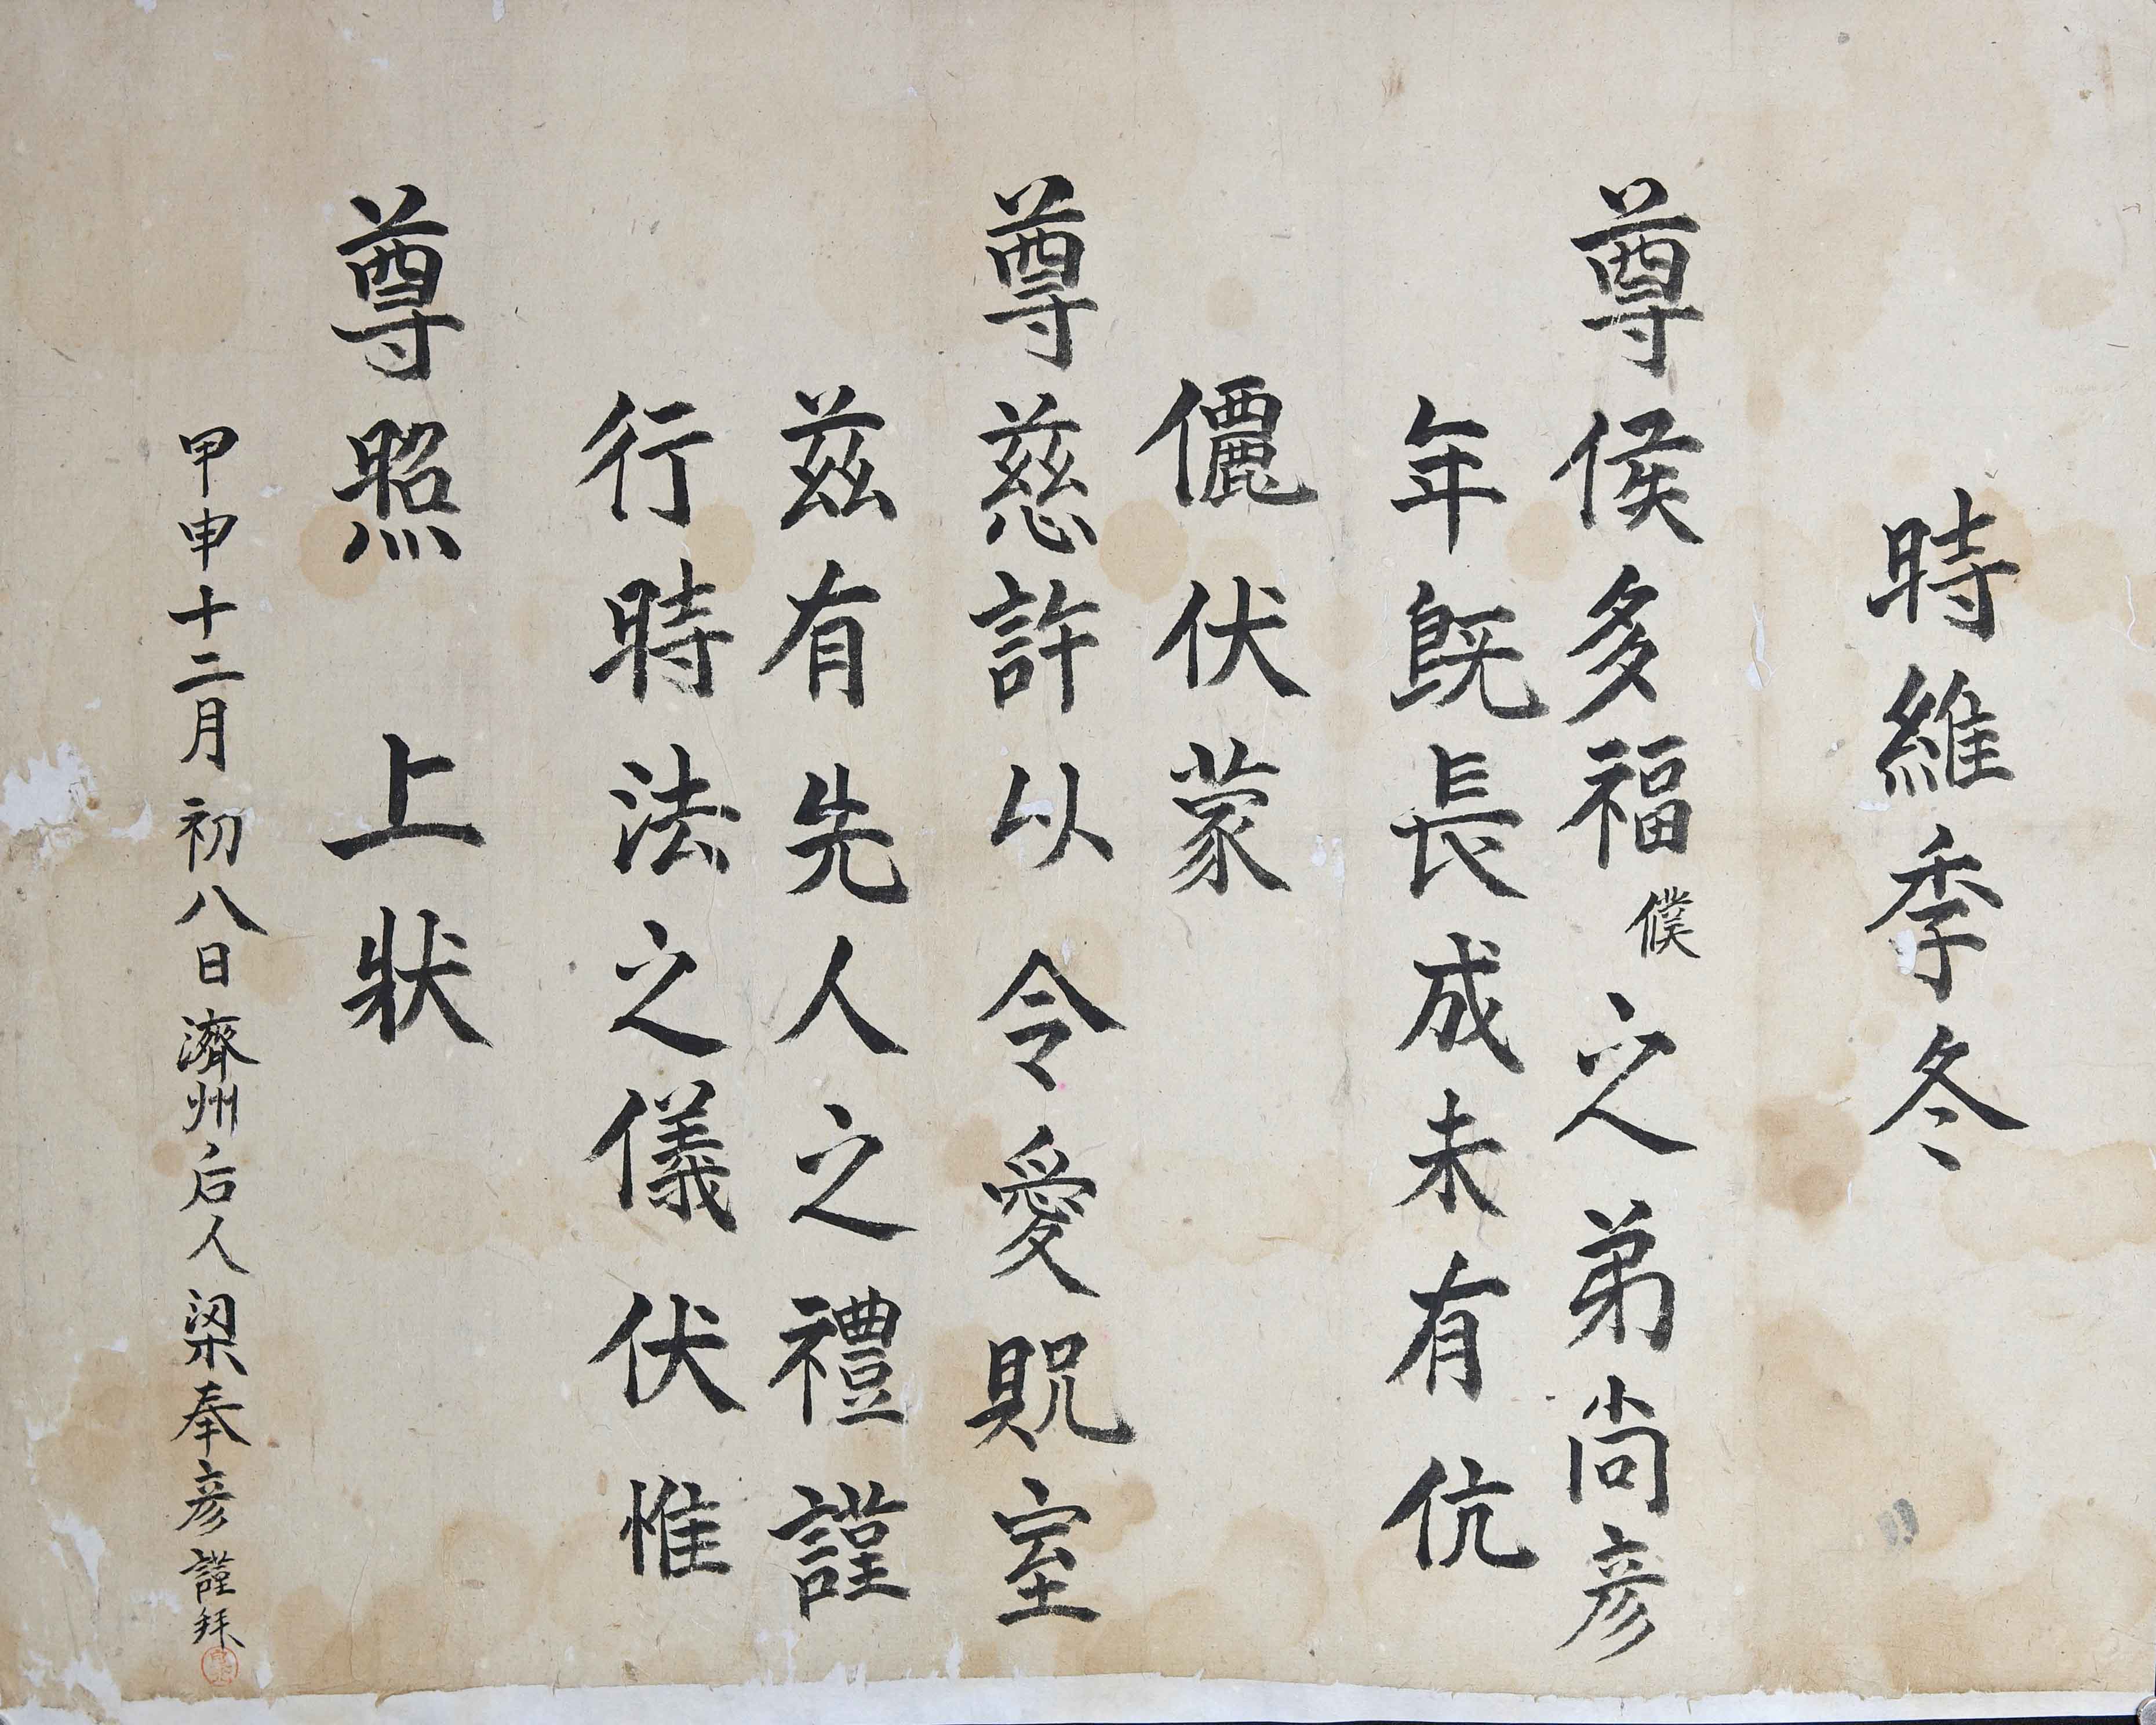 時維季冬
尊候多福僕之弟尚彦
年旣長成未有伉
儷伏蒙
尊慈許以令愛貺室
茲有先人之禮謹
行時法之儀伏惟
尊照 上狀
甲申十二月初八日濟州后人梁奉彦謹拜